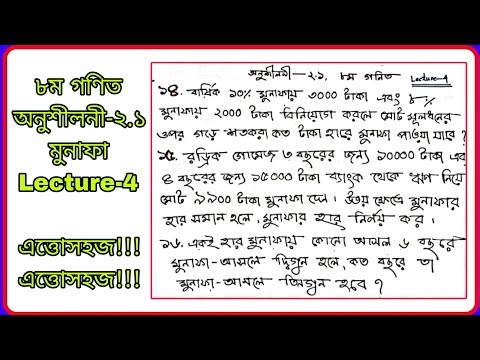 ৮ম গণিত
অনুশীলনী-২.১
মুনাফা
Lecture-4
এত্তোসহজ!!!
এত্তোসহজ!!!
অনুশীলনী—২.১, ৮ম গণিত Lecture-4
১৪. বার্ষিক ১০% মুনাফায় ৩০০০ টাকা এবং ৮%
মুনাফায় ২০০০ টাকা বিনিয়োগ করলে মোট মূলধনের
ওপর গড়ে শতকরা কত টাকা হারে মুনাফা পাওয়া যাবে?
১৫. রড্রিক গোমেজ ৩ বছরের জন্য ১০০০০ টাকা এবং
৪ বছরের জন্য ১৫০০০ টাকা ব্যাংক থেকে ঋণ নিয়ে
মোট ৯৯০০ টাকা মুনাফা দেন। উভয় ক্ষেত্রে মুনাফার
হার সমান হলে, মুনাফার হার নির্ণয় কর।
১৬. একই হার মুনাফায় কোনো আসল ৬ বছরে
মুনাফা-আসলে দ্বিগুন হলে, কত বছরে তা
মুনাফা-আসলে তিনগুন হবে?